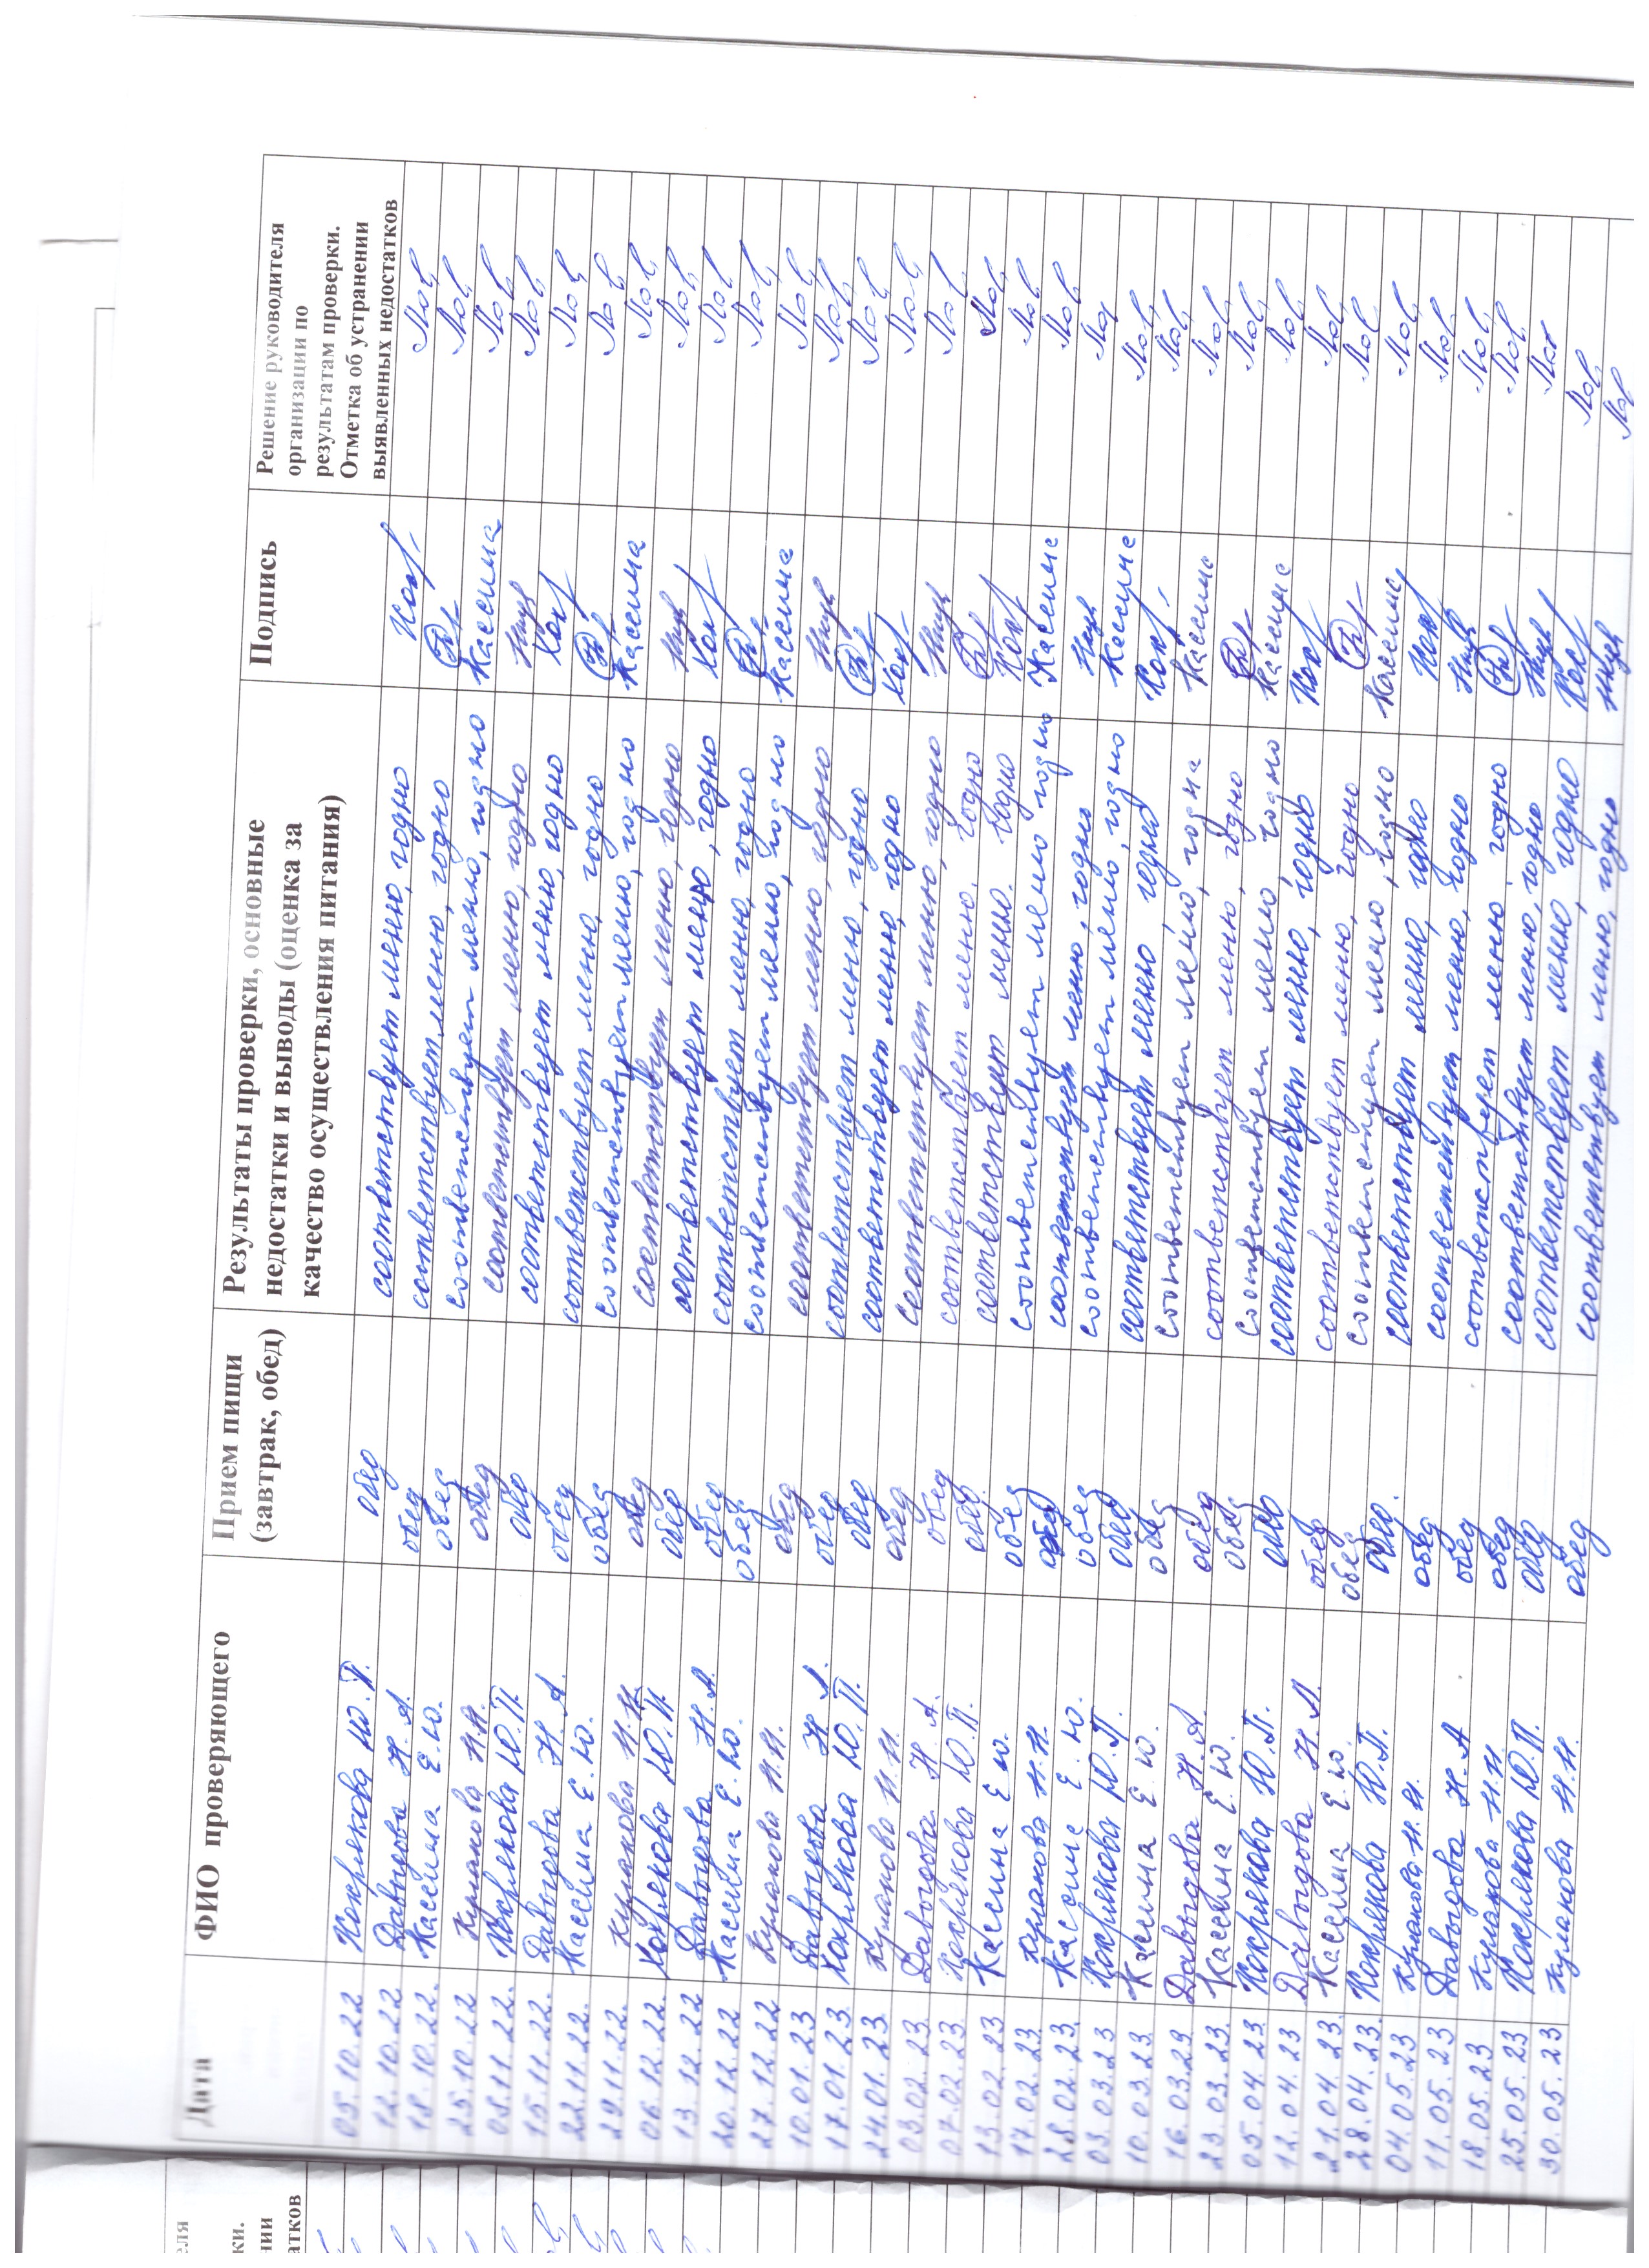 Дата ФИО проверяющего Прием пищи (завтрак, обед) Результаты проверки, основные недостатки и выводы (оценка за качество осуществления питания) Подпись Решение руководителя организации по результатам проверки. Отметка об устранении выявленных недостатков
05.10.22 Кокрякова Ю.П. обед соответствует меню, годно
12.10.22 Давыдова Н.А. обед соответствует меню, годно
18.10.22. Кассина Е.Ю. обед соответствует меню, годно Кассина
25.10.22 Кулакова Н.Н. обед соответствует меню, годно
08.11.22. Кокрякова Ю.П. обед соответствует меню, годно
15.11.22. Давыдова Н.А. обед соответствует меню, годно
22.11.22. Кассина Е.Ю. обед соответствует меню, годно Кассина
29.11.22. Кулакова Н.Н. обед соответствует меню, годно
06.12.22. Кокрякова Ю.П. обед соответствует меню, годно
13.12.22 Давыдова Н.А. обед соответствует меню, годно
20.12.22 Кассина Е.Ю. обед соответствует меню, годно Кассина
27.12.22 Кулакова Н.Н. обед соответствует меню, годно
10.01.23 Давыдова Н.А. обед соответствует меню, годно
17.01.23 Кокрякова Ю.П. обед соответствует меню, годно
24.01.23 Кулакова Н.Н. обед соответствует меню, годно
03.02.23. Давыдова Н.А. обед соответствует меню, годно
07.02.23. Кокрякова Ю.П. обед соответствует меню. годно
13.02.23 Кассина Е.Ю. обед соответствует меню годно Кассина
17.02.23. Кулакова Н.Н. обед соответствует меню, годно
28.02.23. Кассина Е.Ю. обед соответствует меню, годно Кассина
03.03.23 Кокрякова Ю.П. обед соответствует меню, годно
10.03.23. Кассина Е.Ю. обед соответствует меню, годно Кассина
16.03.23 Давыдова Н.А. обед соответствует меню, годно
23.03.23. Кассина Е.Ю. обед соответствует меню годно Кассина
05.04.23 Кокрякова Ю.П. обед соответствует меню, годно
12.04.23 Давыдова Н.А. обед соответствует меню, годно
21.04.23. Кассина Е.Ю. обед соответствует меню, годно Кассина
28.04.23. Кокрякова Ю.П. обед соответствует меню, годно
04.05.23 Кулакова Н.Н. обед соответствует меню, годно
11.05.23 Давыдова Н.А обед соответствует меню, годно
18.05.23 Кулакова Н.Н. обед соответствует меню, годно
25.05.23 Кокрякова Ю.П. обед соответствует меню, годно
30.05.23 Кулакова Н.Н. обед соответствует меню, годно